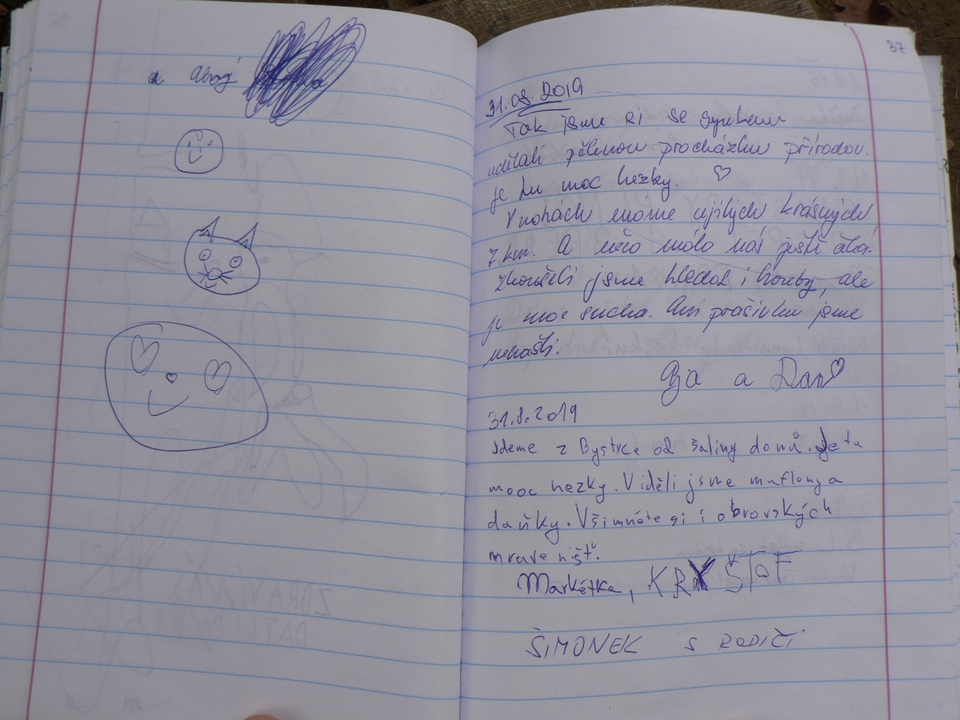 a ahoj
37
31.08.2019
Tak jsme si se synkem
udělali pěknou procházku přírodou.
je tu moc hezky.
V nohách máme ujitých krásných
7 km. A něco málo nás ještě čeká.
Zkoušeli jsme hledat i houby, ale
je moc sucho. Ani prašivku jsme
nenašli.
a Dan
31.8.2019
Jdeme z Bystrce od šaliny domů. Je tu
mooc hezky. Viděli jsme muflony a
daňky. Všimněte si i obrovských
mravenišť.
Markétka, KRYŠTOF
ŠIMONEK S RODIČI